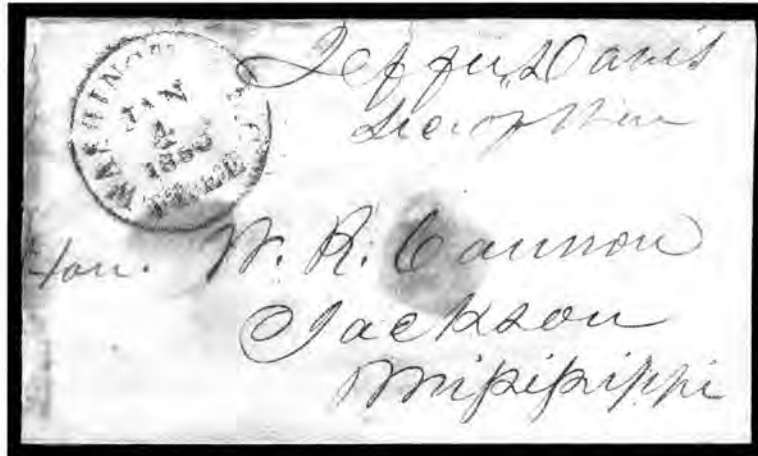 WASHINGTON D.C.
JAN
4
FREE
Jeffn, Davis
Sec. of War
Hon. W. R. Cannon
Jackson
Mississippi